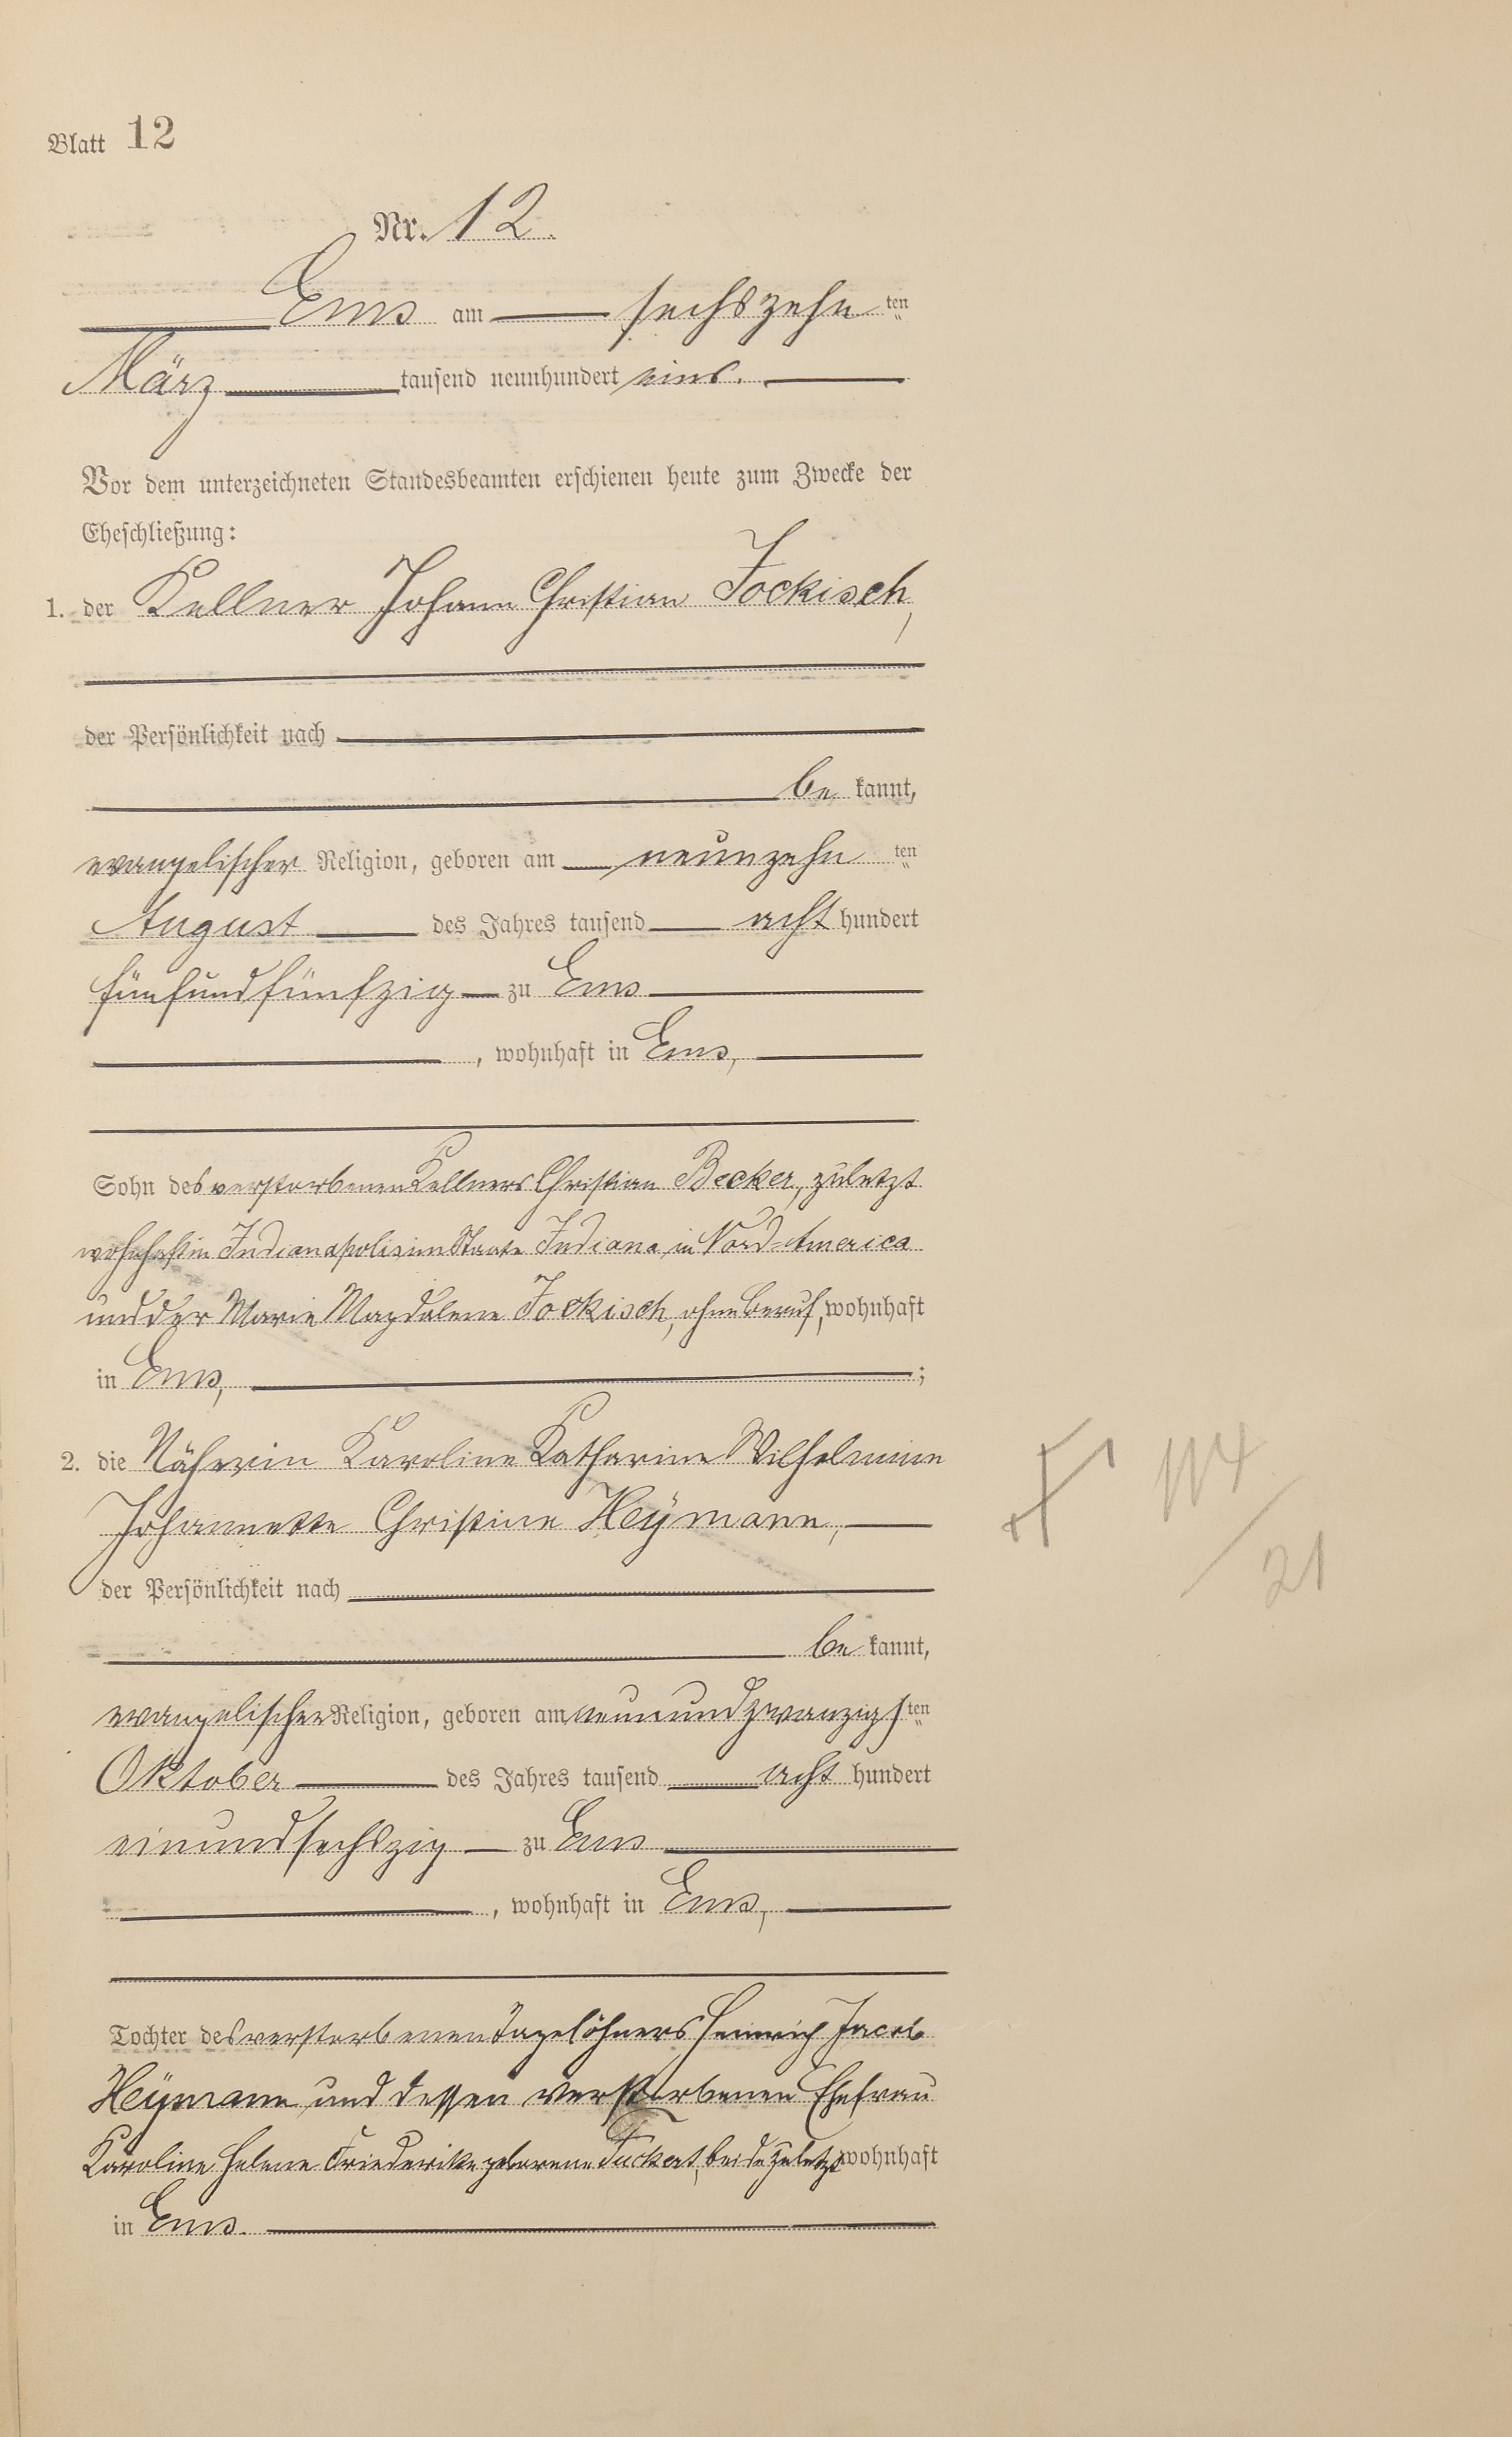 Blatt 12
Nr. 12.
Ems am sechszehn ten
März tausend neunhundert eins.
Vor dem unterzeichneten Standesbeamten erschienen heute zum Zwecke der
Eheschließung:
1. der Kellner Johann Christian Jockisch,
der Persönlichkeit nach
be kannt,
evangelischer Religion, geboren am neunzehn ten
August des Jahres tausend acht hundert
fünfundfünfzig zu Ems
, wohnhaft in Ems,
Sohn des verstorbenen Kellners Christian Becker, zuletzt
wohnhaft in Indianapolis im Staate Indiana in Nord-America
und der Marie Magdalene Jockisch, ohne Beruf, wohnhaft
in Ems, ;
2. die Näherin Karoline Katharine Wilhelmine
Johannette Christine Heÿmann,
der Persönlichkeit nach
be kannt,
evangelischer Religion, geboren am neunundzwanzigs ten
Oktober des Jahres tausend acht hundert
einundsechszig zu Ems
, wohnhaft in Ems,
Tochter des verstorbenen Tagelöhners Heinrich Jacob
Heÿmann und dessen verstorbenen Ehefrau
Karoline Helene Friederike geborene Tuckert, beide zuletzt wohnhaft
in Ems.
114
/
21